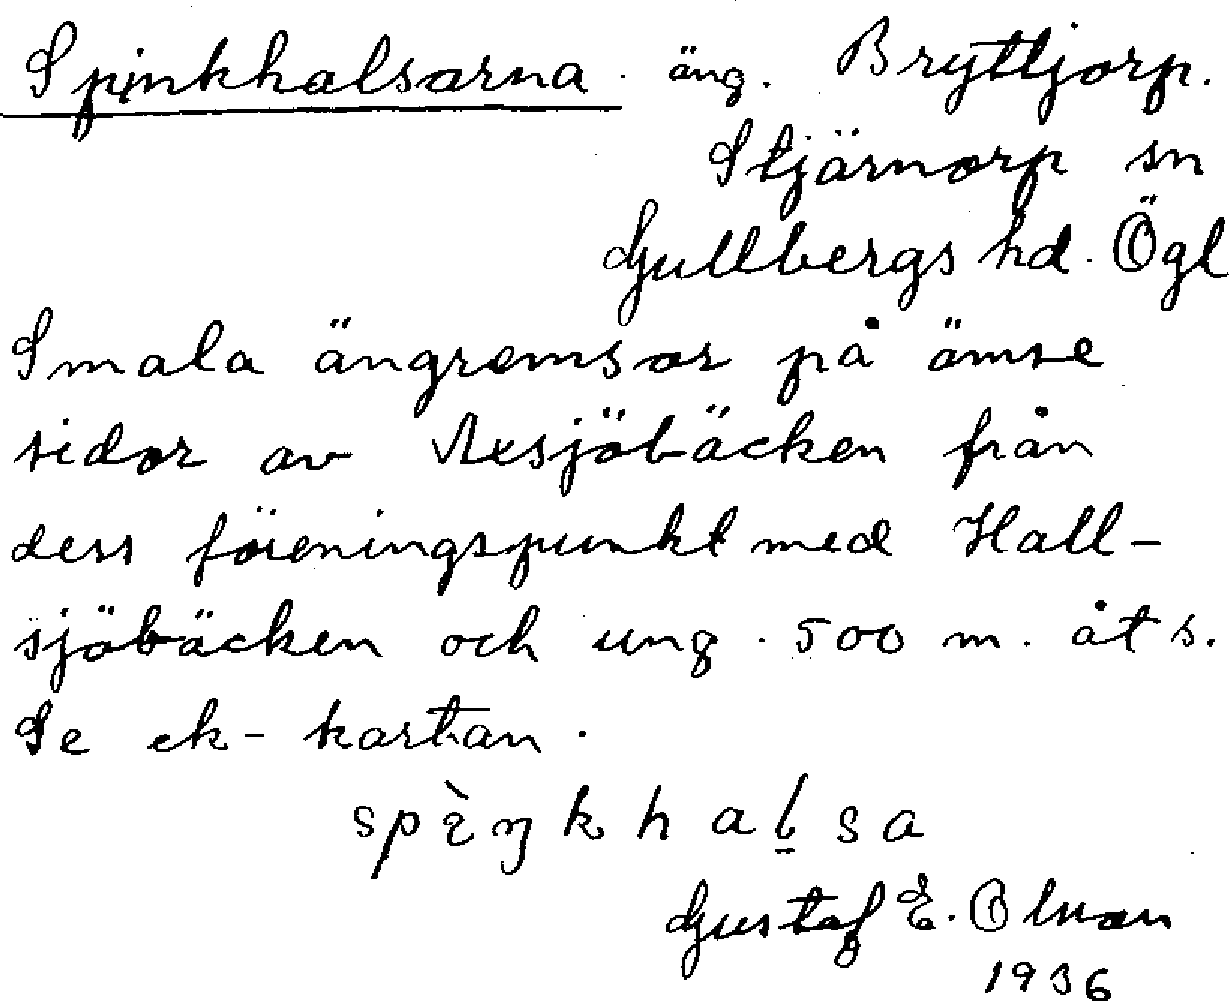 Spinkhalsarna. äng. Bryttjorp.
Stjärnorp sn
Gullbergs hd. Ögl
Smala ängremsor på ömse
sidor av Axsjöbäcken från
dess föreningspunkt med Hall-
sjöbäcken och ung. 500 m. åt s.
Se ek-kartan.
Gustaf E. Olsson
1936